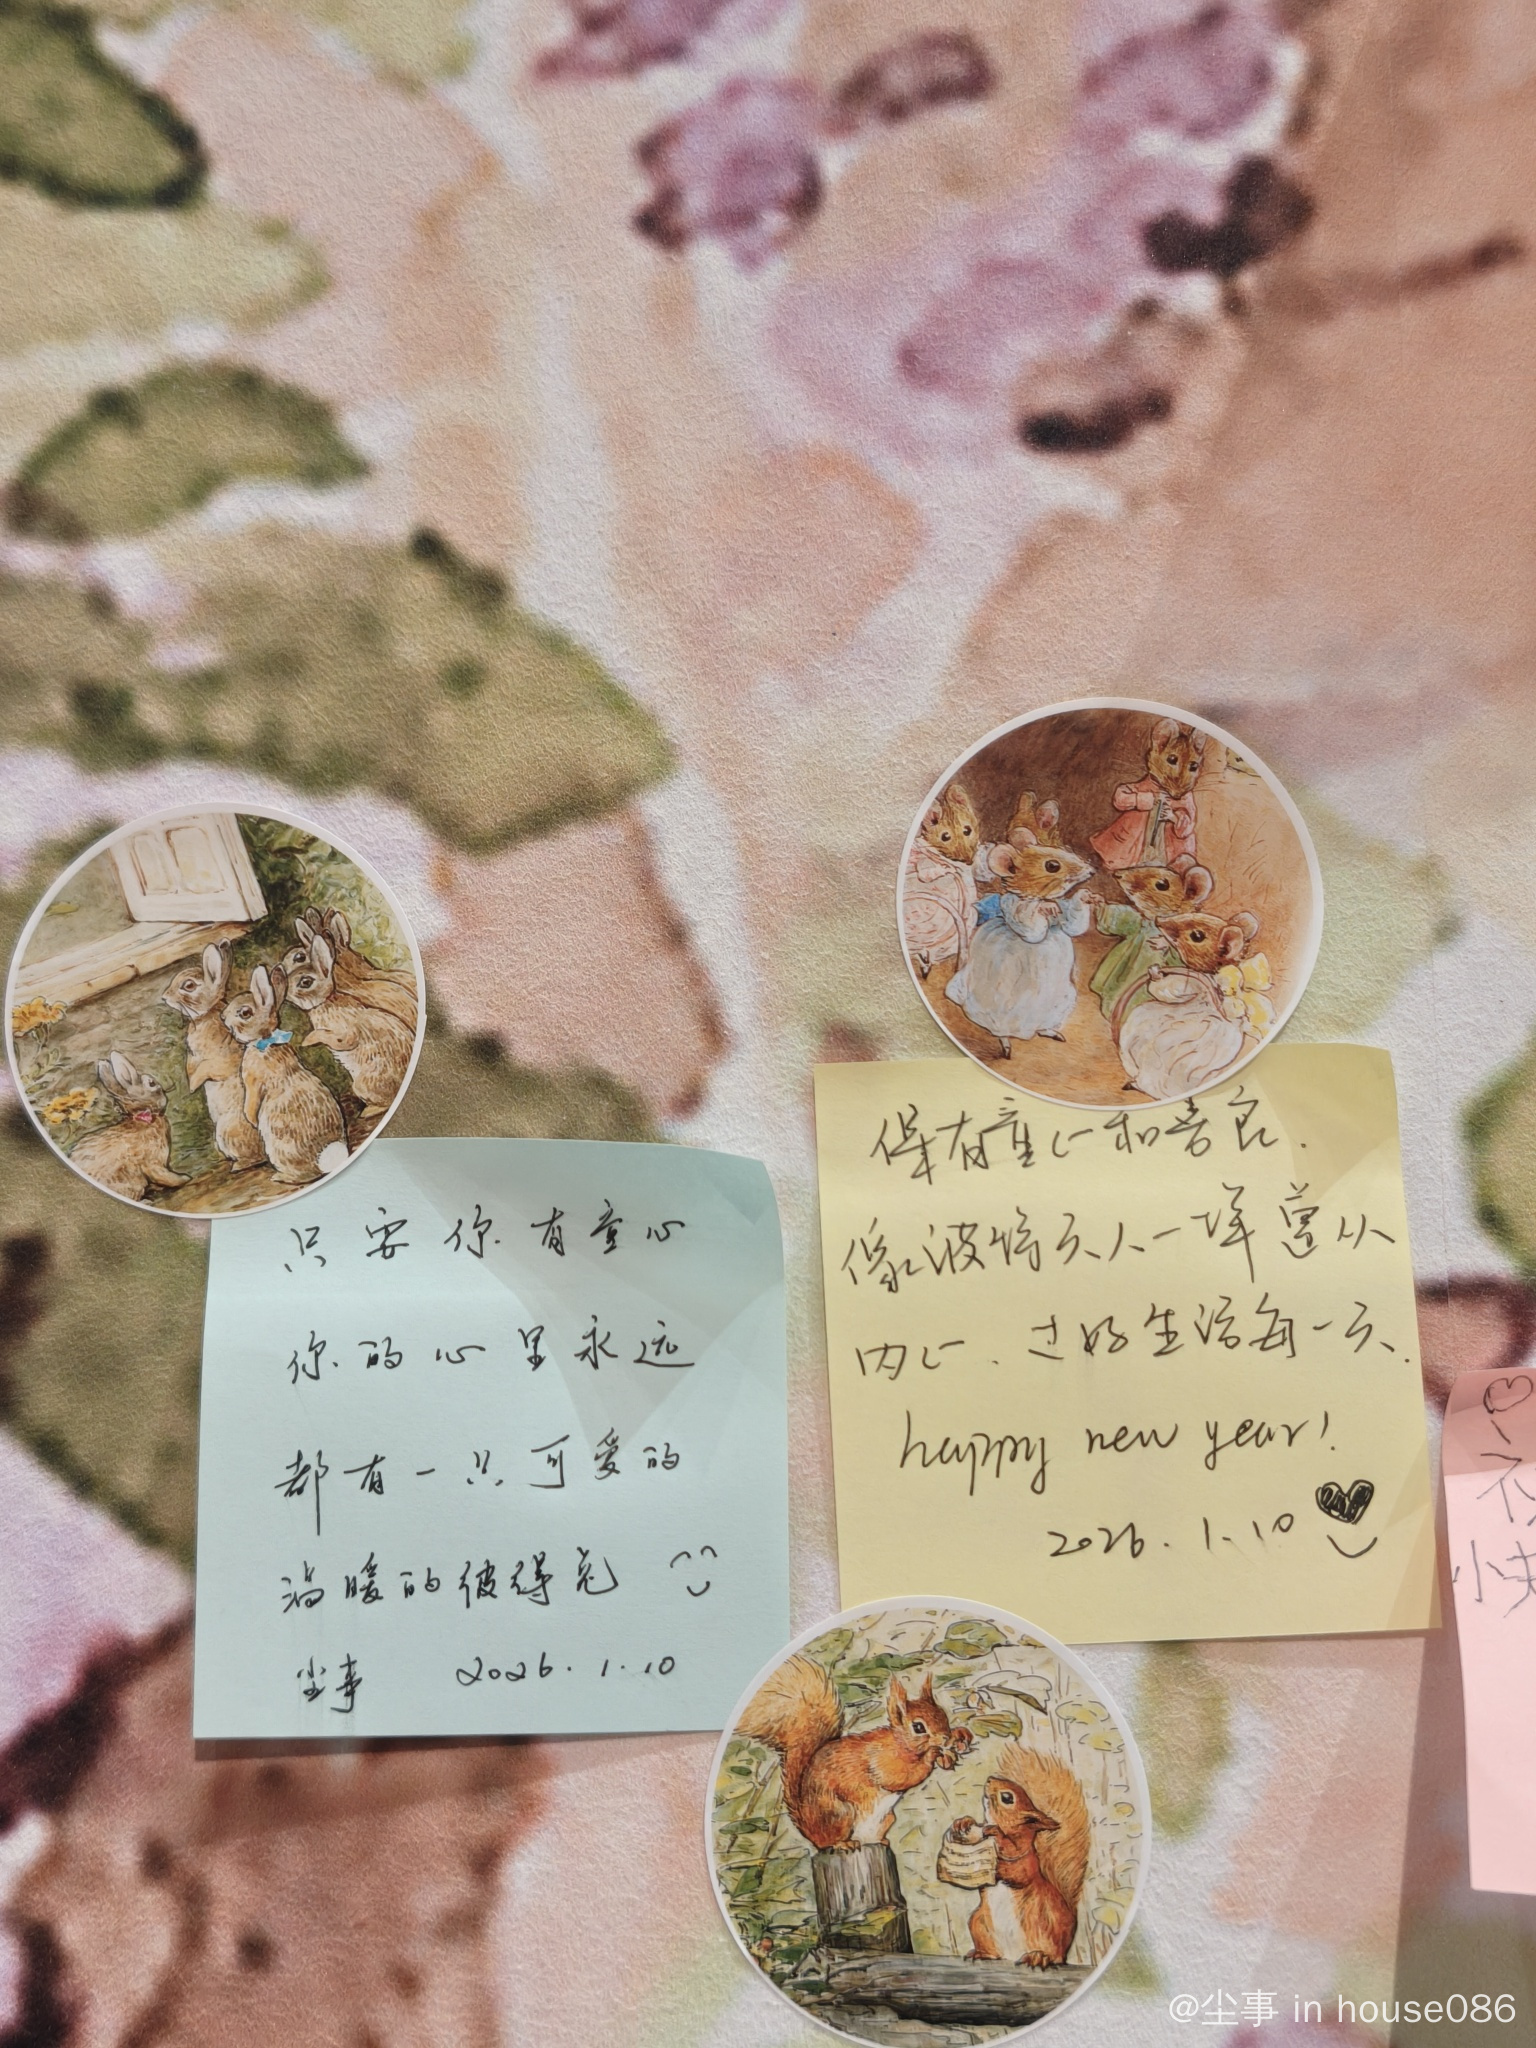 只要你有童心
你的心里永远
都有一只可爱的
温暖的彼得兔
尘事 2026.1.10
保有童心和善良.
像波特夫人一样遵从
内心、过好生活每一天.
happy new year!
2026.1.10
小夫
@尘事 in house086